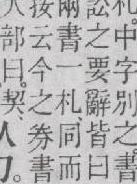 札中字別之。書
訟之要辭皆曰
兩書一札、同而
按云今之券書
部曰。契、